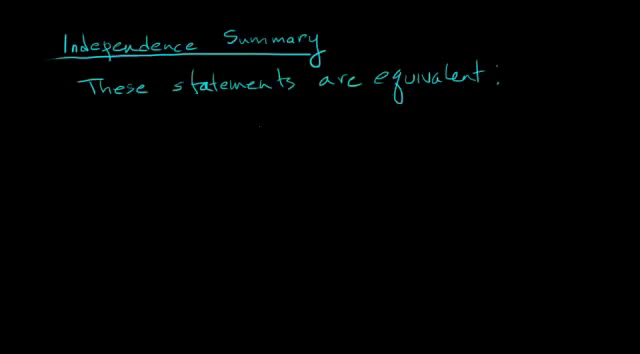 Independence Summary
These statements are equivalent: